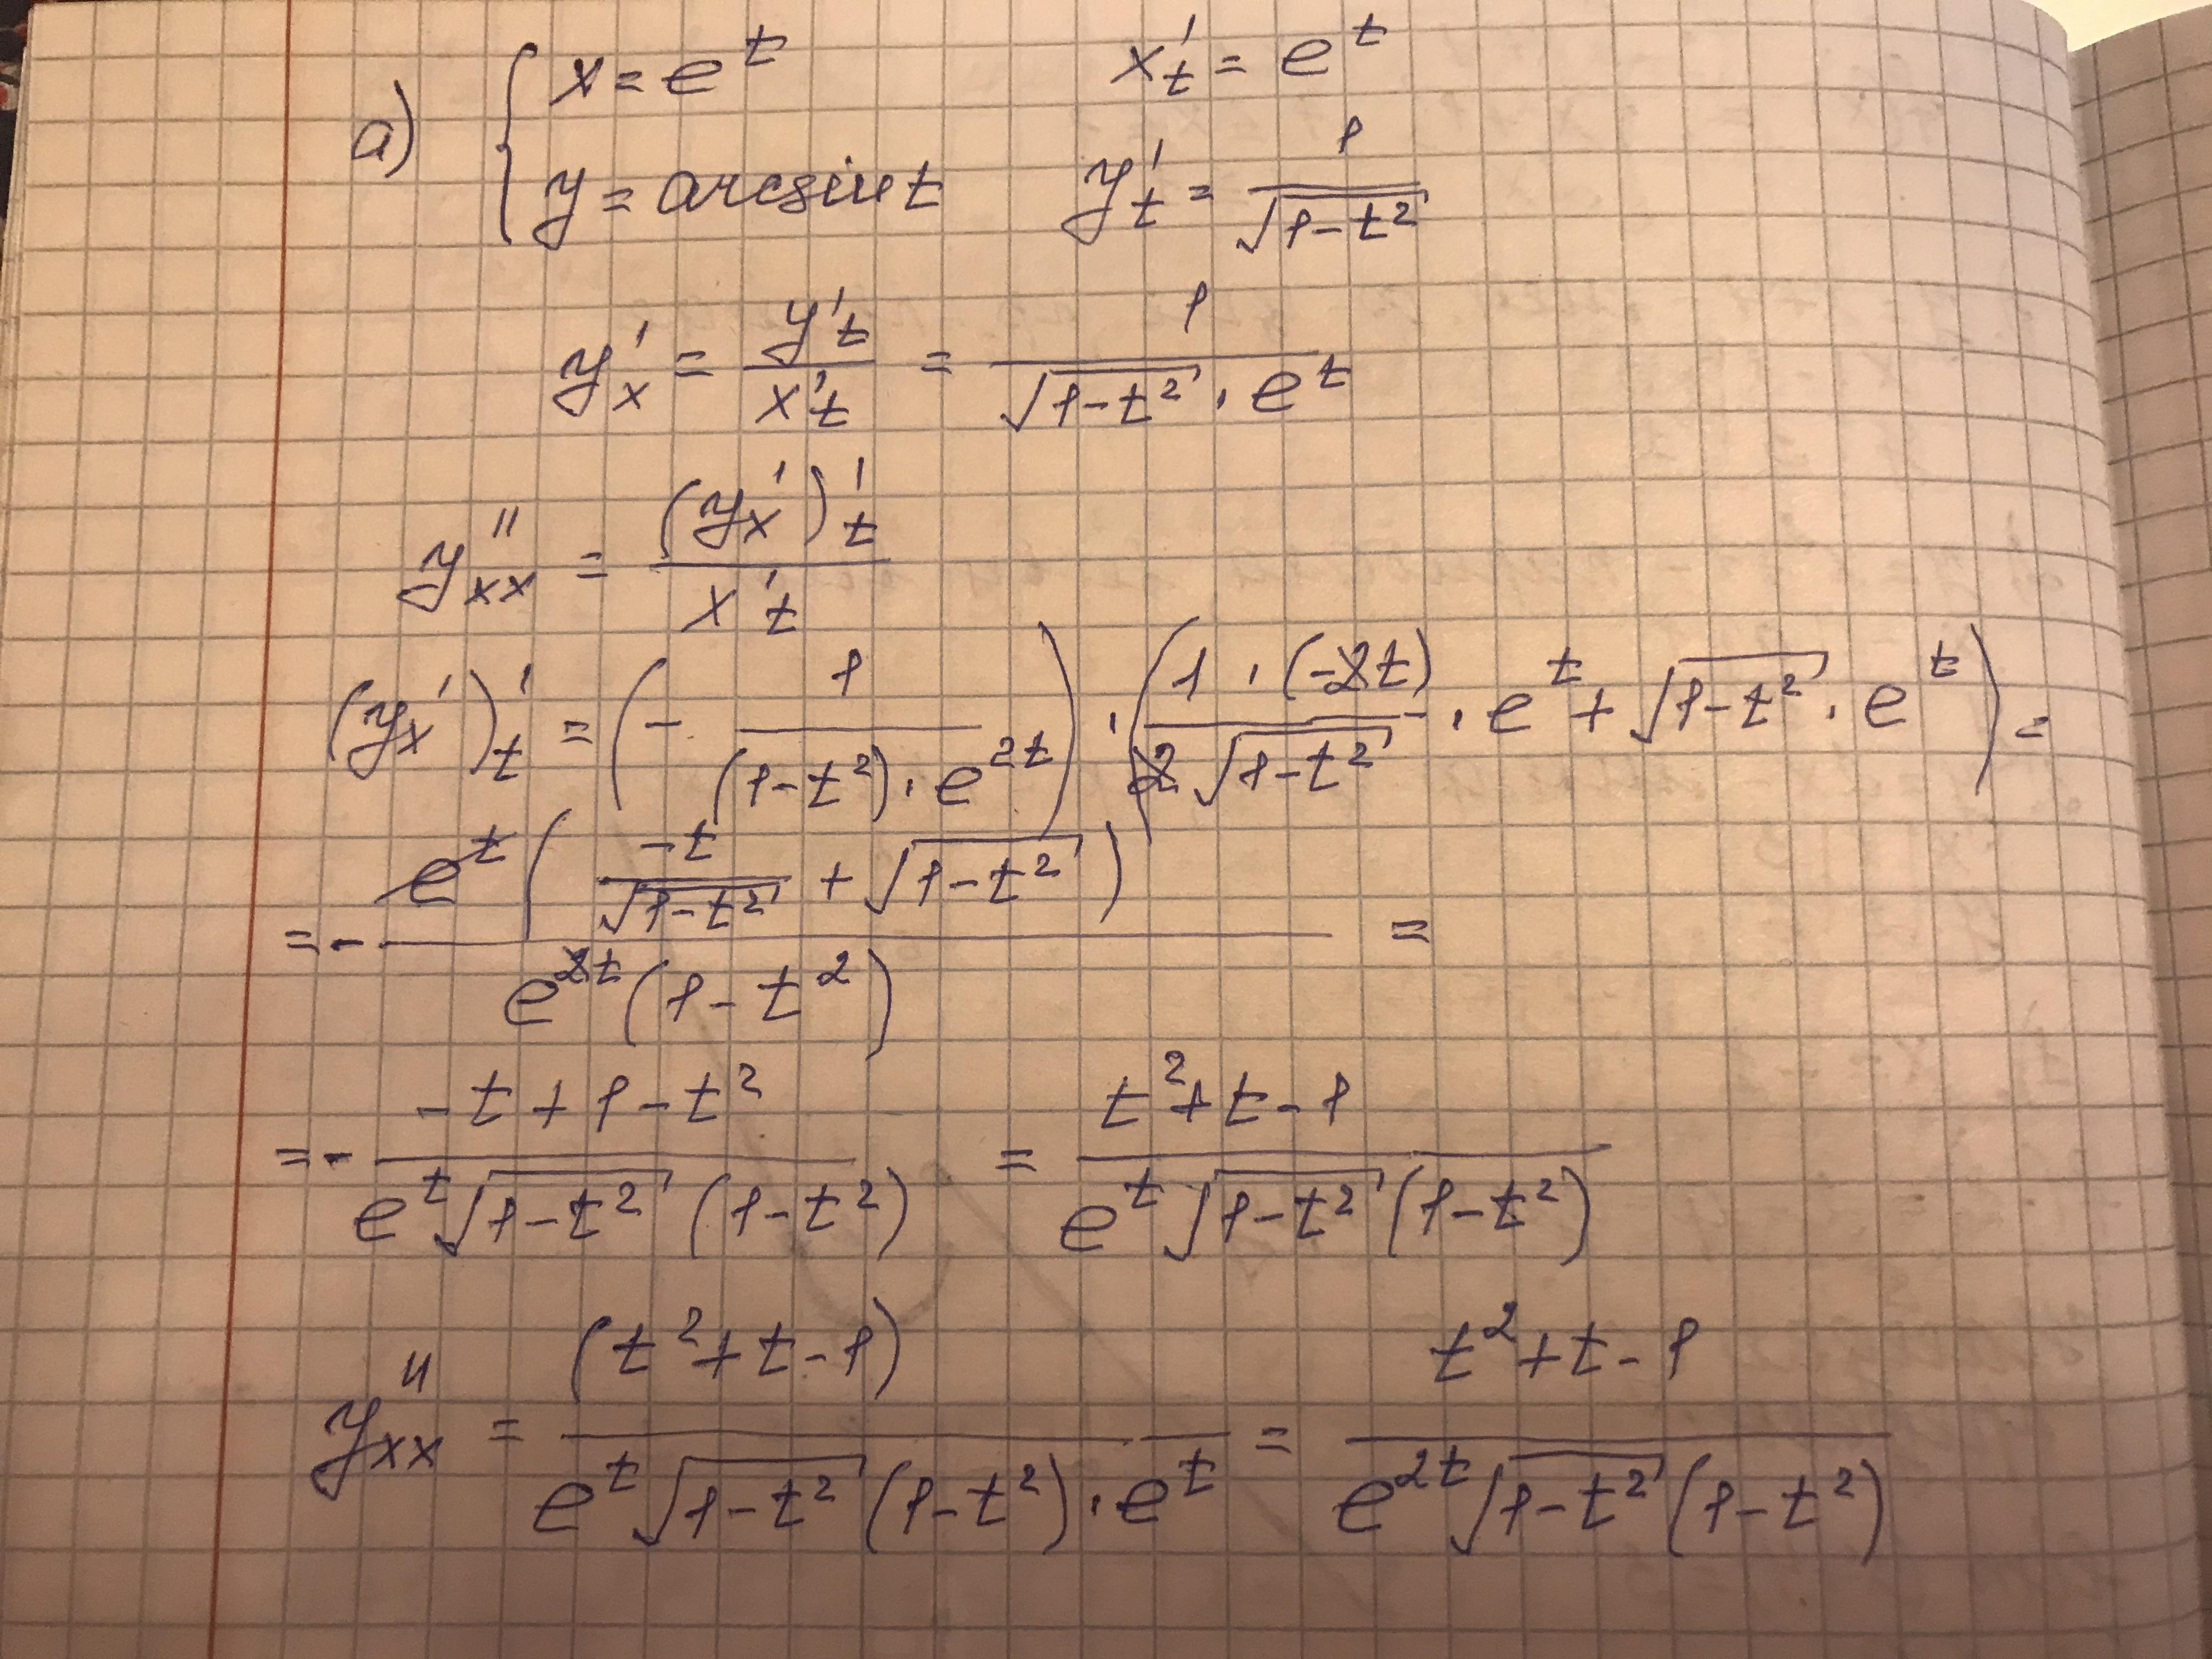 a) { x = e^t    x'_t = e^t
y = arcsin t    y'_t = 1/√(1-t²)
y'_x = y'_t / x'_t = 1/(√(1-t²) · e^t)
y''_xx = (y'_x)'_t / x'_t
(y'_x)'_t = (- 1/((1-t²) · e^(2t))) · (1 · (-2t)/(2√(1-t²)) · e^t + √(1-t²) · e^t) =
= - e^t (-t/√(1-t²) + √(1-t²)) / (e^(2t) (1-t²)) =
= - (-t + 1 - t²)/(e^t √(1-t²) (1-t²)) = (t² + t - 1)/(e^t √(1-t²) (1-t²))
y''_xx = (t² + t - 1)/(e^t √(1-t²) (1-t²) · e^t) = (t² + t - 1)/(e^(2t) √(1-t²) (1-t²))